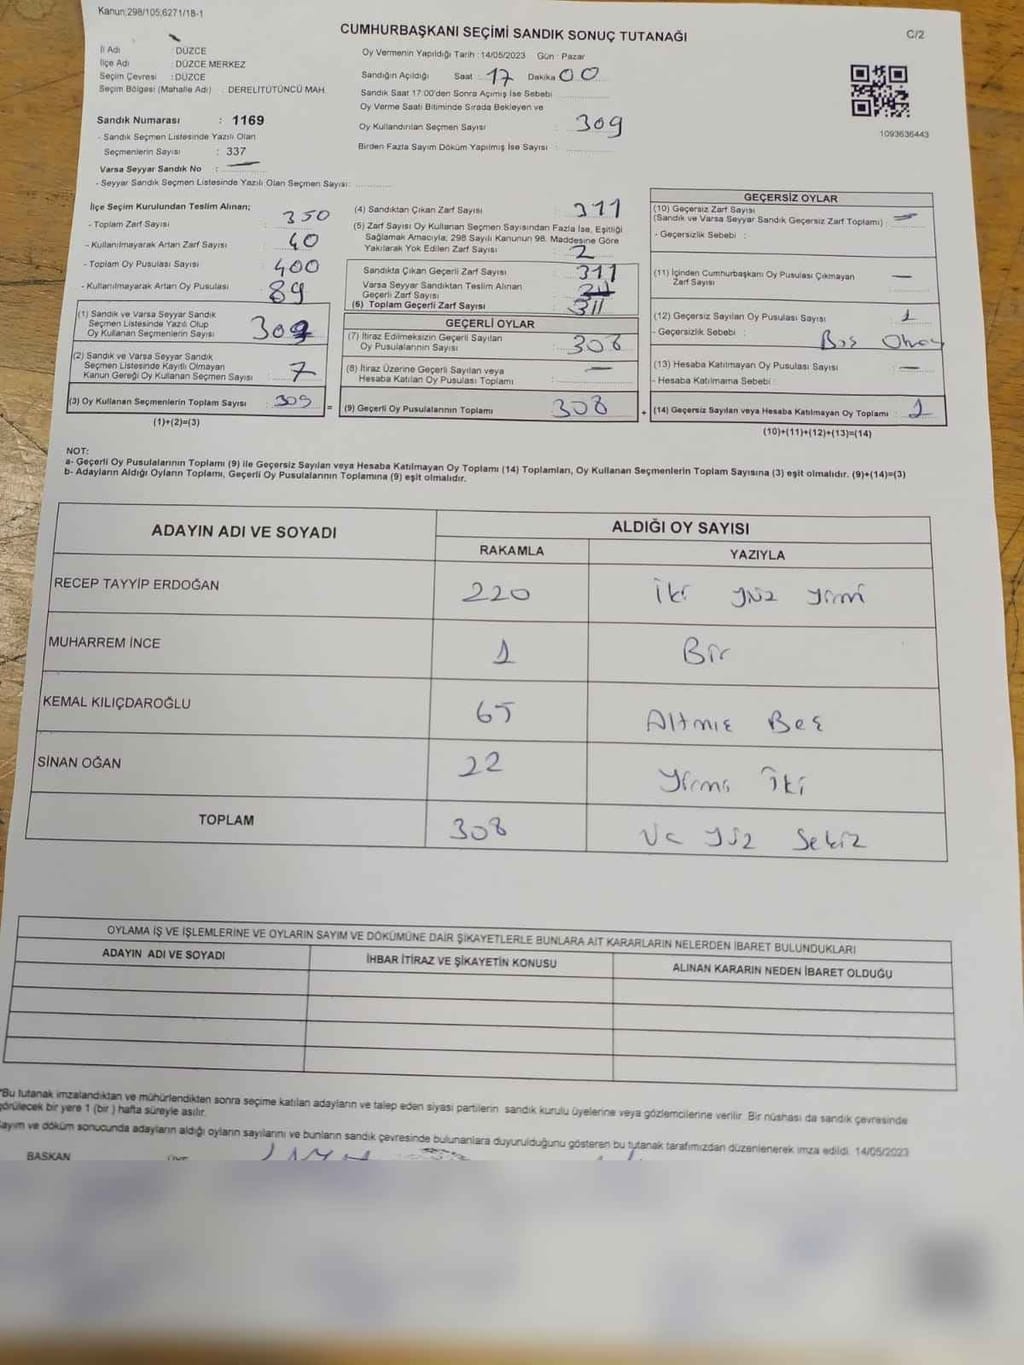 Kanun;298/105,6271/18-1
CUMHURBAŞKANI SEÇİMİ SANDIK SONUÇ TUTANAĞI
C/2
İl Adı : DÜZCE
İlçe Adı : DÜZCE MERKEZ
Seçim Çevresi : DÜZCE
Seçim Bölgesi (Mahalle Adı) : DERELİTÜTÜNCÜ MAH.
Sandık Numarası : 1169
- Sandık Seçmen Listesinde Yazılı Olan
Seçmenlerin Sayısı : 337
Varsa Seyyar Sandık No :
- Seyyar Sandık Seçmen Listesinde Yazılı Olan Seçmen Sayısı:
Oy Vermenin Yapıldığı Tarih : 14/05/2023 Gün : Pazar
Sandığın Açıldığı Saat : 17 Dakika 00
Sandık Saat 17:00'den Sonra Açımış İse Sebebi
Oy Verme Saati Bitiminde Sırada Bekleyen ve
Oy Kullandırılan Seçmen Sayısı : 309
Birden Fazla Sayım Döküm Yapılmış İse Sayısı :
1093636443
İlçe Seçim Kurulundan Teslim Alınan;
- Toplam Zarf Sayısı : 350
- Kullanılmayarak Artan Zarf Sayısı : 40
- Toplam Oy Pusulası Sayısı : 400
- Kullanılmayarak Artan Oy Pusulası : 89
(1) Sandık ve Varsa Seyyar Sandık
Seçmen Listesinde Yazılı Olup
Oy Kullanan Seçmenlerin Sayısı 302
(2) Sandık ve Varsa Seyyar Sandık
Seçmen Listesinde Kayıtlı Olmayan
Kanun Gereği Oy Kullanan Seçmen Sayısı 7
(3) Oy Kullanan Seçmenlerin Toplam Sayısı : 309
(1)+(2)=(3)
(4) Sandıktan Çıkan Zarf Sayısı : 311
(5) Zarf Sayısı Oy Kullanan Seçmen Sayısından Fazla İse, Eşitliği
Sağlamak Amacıyla, 298 Sayılı Kanunun 98. Maddesine Göre
Yakılarak Yok Edilen Zarf Sayısı : 2
Sandıkta Çıkan Geçerli Zarf Sayısı : 311
Varsa Seyyar Sandıktan Teslim Alınan
Geçerli Zarf Sayısı
(6) Toplam Geçerli Zarf Sayısı : 311
GEÇERLİ OYLAR
(7) İtiraz Edilmeksizin Geçerli Sayılan
Oy Pusulalarının Sayısı : 308
(8) İtiraz Üzerine Geçerli Sayılan veya
Hesaba Katılan Oy Pusulası Toplamı :
= (9) Geçerli Oy Pusulalarının Toplamı : 308
GEÇERSİZ OYLAR
(10) Geçersiz Zarf Sayısı
(Sandık ve Varsa Seyyar Sandık Geçersiz Zarf Toplamı) :
- Geçersizlik Sebebi :
(11) İçinden Cumhurbaşkanı Oy Pusulası Çıkmayan
Zarf Sayısı :
(12) Geçersiz Sayılan Oy Pusulası Sayısı : 1
- Geçersizlik Sebebi : Boş
(13) Hesaba Katılmayan Oy Pusulası Sayısı :
- Hesaba Katılmama Sebebi :
+ (14) Geçersiz Sayılan veya Hesaba Katılmayan Oy Toplamı : 1
(10)+(11)+(12)+(13)=(14)
NOT:
a- Geçerli Oy Pusulalarının Toplamı (9) ile Geçersiz Sayılan veya Hesaba Katılmayan Oy Toplamı (14) Toplamları, Oy Kullanan Seçmenlerin Toplam Sayısına (3) eşit olmalıdır. (9)+(14)=(3)
b- Adayların Aldığı Oyların Toplamı, Geçerli Oy Pusulalarının Toplamına (9) eşit olmalıdır.
ADAYIN ADI VE SOYADI
ALDIĞI OY SAYISI
RAKAMLA YAZIYLA
RECEP TAYYİP ERDOĞAN 220 İki yüz yirmi
MUHARREM İNCE 1 Bir
KEMAL KILIÇDAROĞLU 65 Altmış Beş
SİNAN OĞAN 22 Yirmi İki
TOPLAM 308 Üç yüz Sekiz
OYLAMA İŞ VE İŞLEMLERİNE VE OYLARIN SAYIM VE DÖKÜMÜNE DAİR ŞİKAYETLERLE BUNLARA AİT KARARLARIN NELERDEN İBARET BULUNDUKLARI
ADAYIN ADI VE SOYADI İHBAR İTİRAZ VE ŞİKAYETİN KONUSU ALINAN KARARIN NEDEN İBARET OLDUĞU
*Bu tutanak imzalandıktan ve mühürlendikten sonra seçime katılan adayların ve talep eden siyasi partilerin sandık kurulu üyelerine veya gözlemcilerine verilir. Bir nüshası da sandık çevresinde
görülecek bir yere 1 (bir ) hafta süreyle asılır.
Sayım ve döküm sonucunda adayların aldığı oyların sayılarını ve bunların sandık çevresinde bulunanlara duyurulduğunu gösteren bu tutanak tarafımızdan düzenlenerek imza edildi. 14/05/2023
BAŞKAN ÜYE